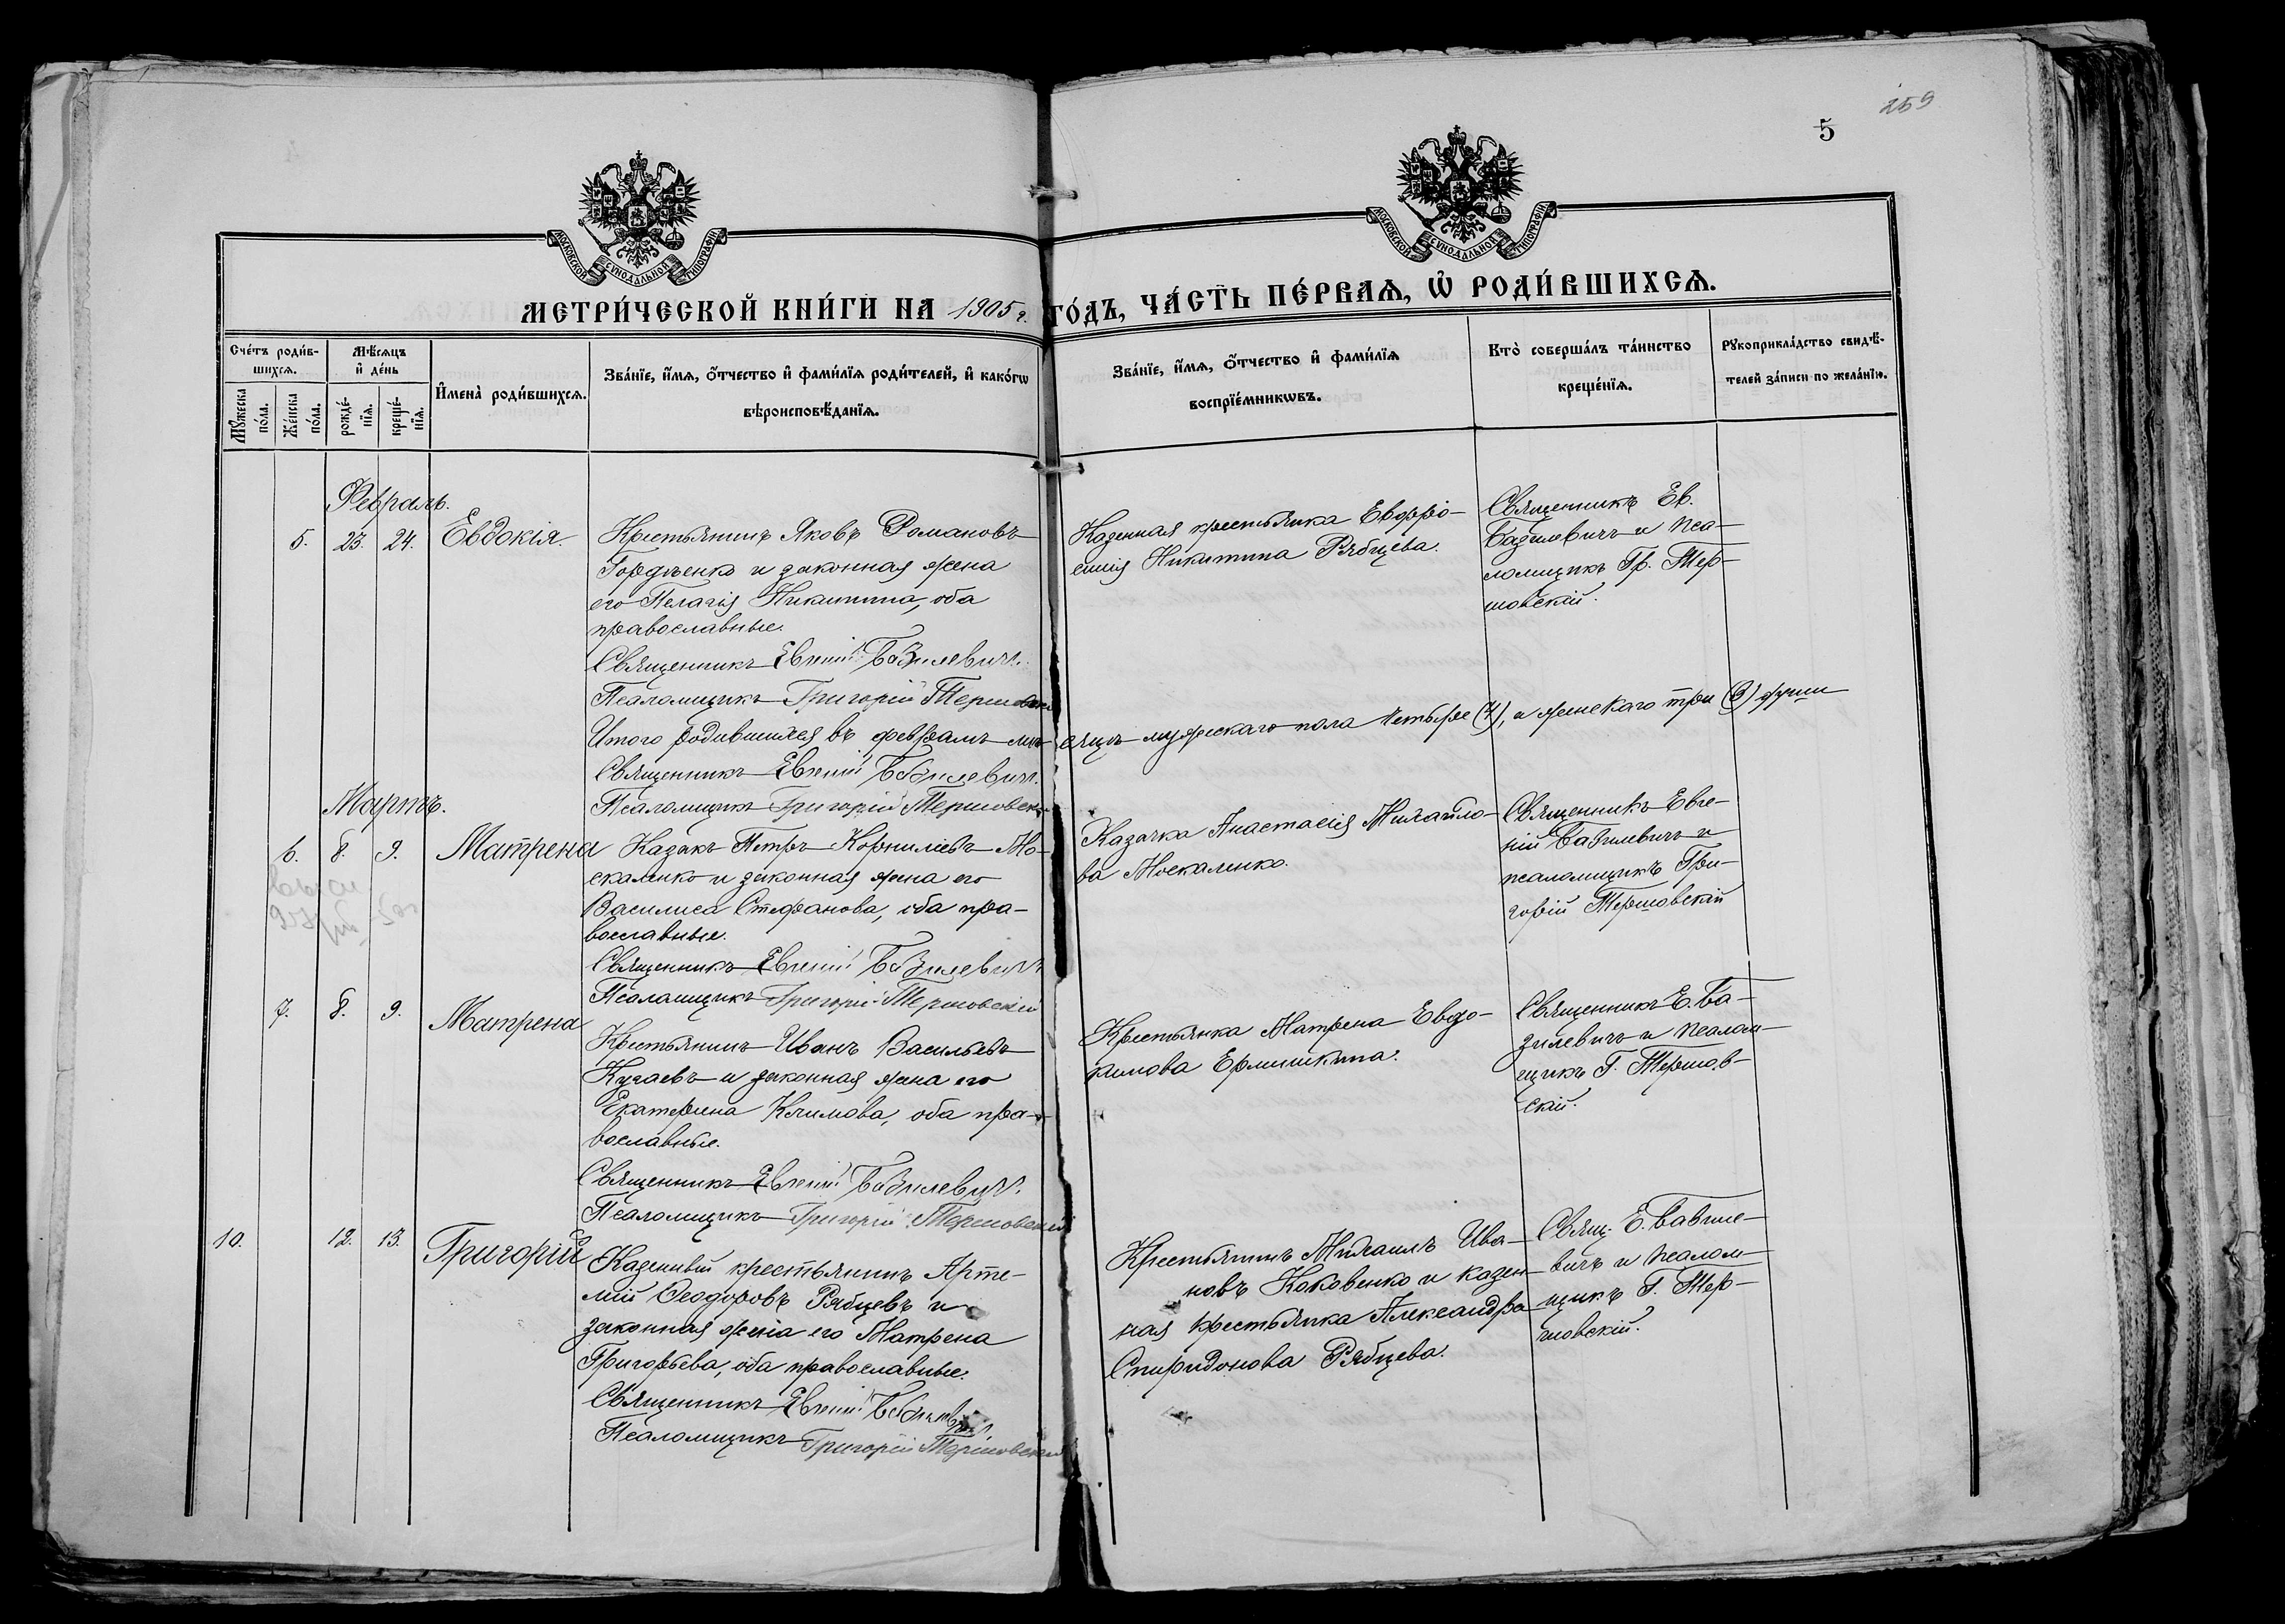 259
5
МОСКОВСКОЙ СѴНОДАЛЬНОЙ ТИПОГРАФІИ
МОСКОВСКОЙ СѴНОДАЛЬНОЙ ТИПОГРАФІИ
МЕТРИ́ЧЕСКОЙ КНИ́ГИ НА 1905 г. ГО́ДЪ, ЧА́СТЬ ПЕ́РВАѦ, Ѽ РОДИ́ВШИХСѦ.
Сче́тъ роди́в-
шихсѧ.
Мꙋжеска по́ла.
Же́нска по́ла.
Мѣ́сѧцъ
и҆ де́нь
рожде́-
нїѧ.
креще́-
нїѧ.
И҆мена̀ роди́вшихсѧ.
Зва́нїе, и҆́мѧ, ѻ҆́тчество и҆ фами́лїѧ роди́телей, и҆ како́гѡ
вѣроисповѣ́данїѧ.
Зва́нїе, и҆́мѧ, ѻ҆́тчество и҆ фами́лїѧ
воспрїе́мникѡвъ.
Кто̀ соверша́лъ та́инство
креще́нїѧ.
Рꙋкоприкла́дство свидѣ́-
телей за́писи по жела́нїю.
Февраль.
5. 23. 24. Евдокія.
Крестьянинъ Яковъ Романовъ
Гордѣенко и законная жена
его Пелагія Никитина, оба
православные.
Священникъ Евгеній Базилевичъ.
Псаломщикъ Григорій Тершовскій
Казенная крестьянка Евфро-
синія Никитина Рябцева.
Священникъ Ев.
Базилевичъ и пса-
ломщикъ Гр. Тер-
шовскій.
Итого родившихся въ февралѣ мѣ-сяцѣ мужескаго пола четыре (4), и женскаго три (3) души
Священникъ Евгеній Базилевичъ.
Псаломщикъ Григорій Тершовскій
Мартъ.
6. 8. 9. Матрена
Казакъ Петръ Корниліевъ Мо-
скаленко и законная жена его
Василиса Стефанова, оба пра-
вославные.
Священникъ Евгеній Базилевичъ
Псаломщикъ Григорій Тершовскій
Казачка Анастасія Михайло-
ва Москаленко.
Священникъ Евге-
ній Базилевичъ и
псаломщикъ Гри-
горій Тершовскій
7. 8. 9. Матрена
Крестьянинъ Иванъ Васильевъ
Кугаевъ и законная жена его
Екатерина Климова, оба пра-
вославные.
Священникъ Евгеній Базилевичъ.
Псаломщикъ Григорій Тершовскій
Крестьянка Матрена Евдо-
кимова Ермишкина.
Священникъ Е. Ба-
зилевичъ и псалом-
щикъ Г. Тершов-
скій.
10. 12. 13. Григорій
Казенный крестьянинъ Арте-
мій Ѳеодоровъ Рябцевъ и
законная жена его Матрена
Григорьева, оба православные.
Священникъ Евгеній Базилевичъ.
Псаломщикъ Григорій Тершовскій
Крестьянинъ Михаилъ Ива-
новъ Коковенко и казен-
ная крестьянка Александра
Спиридонова Рябцева.
Свящ. Е. Базиле-
вичъ и псалом-
щикъ Г. Тер-
шовскій.